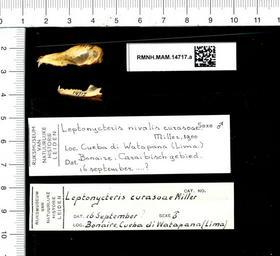 1 2 3 4 5 6 7 8 9 10 11
RMNH.MAM.14717.a
RIJKSMUSEUM
VAN
NATUURLIJKE
HISTORIE
LEIDEN
Leptonycteris nivalis curasoae SEXE ♂
Miller, 1900
Loc. Cueba di Watapana (Lima)
Bonaire. Caraibisch gebied.
Dat. 16 september ....?
RIJKSMUSEUM
VAN
NATUURLIJKE
HISTORIE
LEIDEN
CAT. NO.
Leptonycteris curasoae Miller
DAT. 16 September ? SEXE ♂
LOC. Bonaire, Cueba di Watapana (Lima)
2
3
4
5
6
7
8
9
10